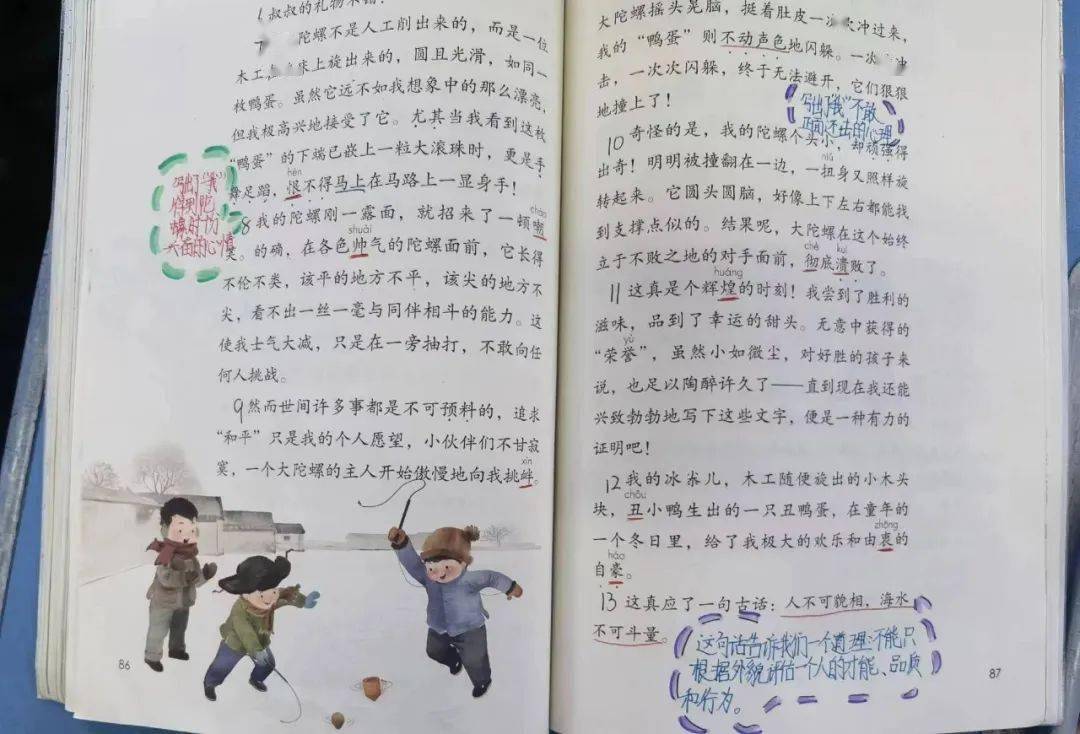 叔叔的礼物不错!
7 陀螺不是人工削出来的,而是一位
木工 床上旋出来的,圆且光滑,如同一
枚鸭蛋。虽然它远不如我想象中的那么漂亮,
但我极高兴地接受了它。尤其当我看到这枚
“鸭蛋”的下端已嵌上一粒大滚珠时,更是手
hèn
舞足蹈,恨不得马上在马路上一显身手!
写出了“我”
cháo
8 我的陀螺刚一露面,就招来了一顿嘲
shuài
笑。的确,在各色帅气的陀螺面前,它长得
十分
兴奋的心情
不伦不类,该平的地方不平,该尖的地方不
尖,看不出一丝一毫与同伴相斗的能力。这
使我士气大减,只是在一旁抽打,不敢向任
何人挑战。
9 然而世间许多事都是不可预料的,追求
“和平”只是我的个人愿望,小伙伴们不甘寂
xìn
寞,一个大陀螺的主人开始傲慢地向我挑衅。
86
大陀螺摇头晃脑,挺着肚皮一次次冲过来,
我的“鸭蛋”则不动声色地闪躲。一次 冲
击,一次次闪躲,终于无法避开,它们狠狠
地撞上了!
写出了“我”不敢
正面还击的心理
10 奇怪的是,我的陀螺个头小,却顽强得
niǔ
出奇!明明被撞翻在一边,一扭身又照样旋
转起来。它圆头圆脑,好像上下左右都能找
到支撑点似的。结果呢,大陀螺在这个始终
chè kuì
立于不败之地的对手面前,彻底溃败了。
huáng
11 这真是个辉煌的时刻!我尝到了胜利的
滋味,品到了幸运的甜头。无意中获得的
yù
“荣誉”,虽然小如微尘,对好胜的孩子来
说,也足以陶醉许久了——直到现在我还能
兴致勃勃地写下这些文字,便是一种有力的
证明吧!
12 我的冰尜儿,木工随便旋出的小木头
chǒu
块,丑小鸭生出的一只丑鸭蛋,在童年的
zhōng
一个冬日里,给了我极大的欢乐和由衷的
háo
自豪。
13 这真应了一句古话:人不可貌相,海水
不可斗量。
这句话告诉我们一个道理:不能只
根据外貌评估一个人的才能、品质
和行为。
87